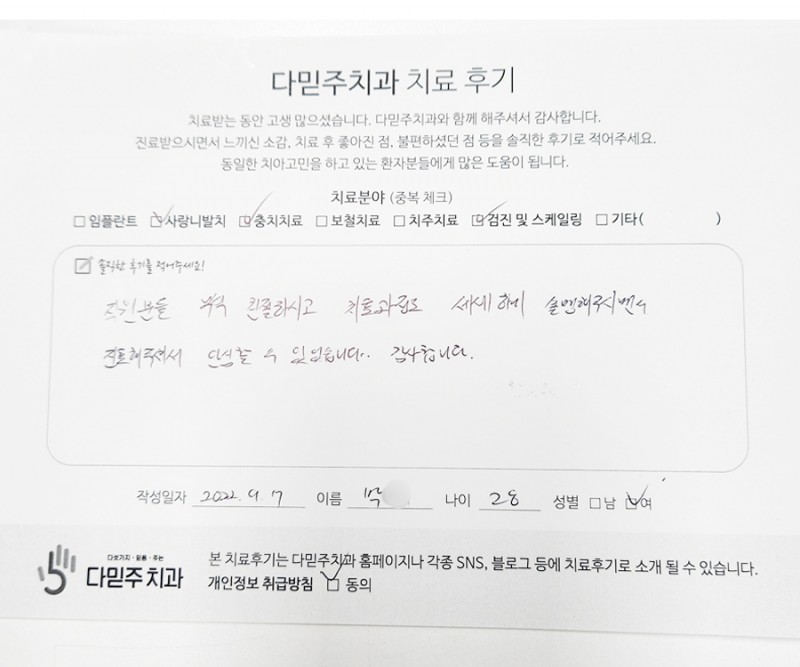 다믿주치과 치료 후기
치료받는 동안 고생 많으셨습니다. 다믿주치과와 함께 해주셔서 감사합니다.
진료받으시면서 느끼신 소감, 치료 후 좋아진 점, 불편하셨던 점 등을 솔직한 후기로 적어주세요.
동일한 치아고민을 하고 있는 환자분들에게 많은 도움이 됩니다.
치료분야 (중복 체크)
□ 임플란트 ☑ 사랑니발치 ☑ 충치치료 □ 보철치료 □ 치주치료 ☑ 검진 및 스케일링 □ 기타( )
솔직한 후기를 적어주세요!
직원분들 무척 친절하시고 치료과정도 세세하게 설명해주시면서
진료해주셔서 안심할 수 있었습니다. 감사합니다.
작성일자 2022. 9. 17 이름 박 나이 28 성별 □ 남 ☑ 여
다섯가지·믿음·주는
다믿주치과
본 치료후기는 다믿주치과 홈페이지나 각종 SNS, 블로그 등에 치료후기로 소개 될 수 있습니다.
개인정보 취급방침 ☑ 동의